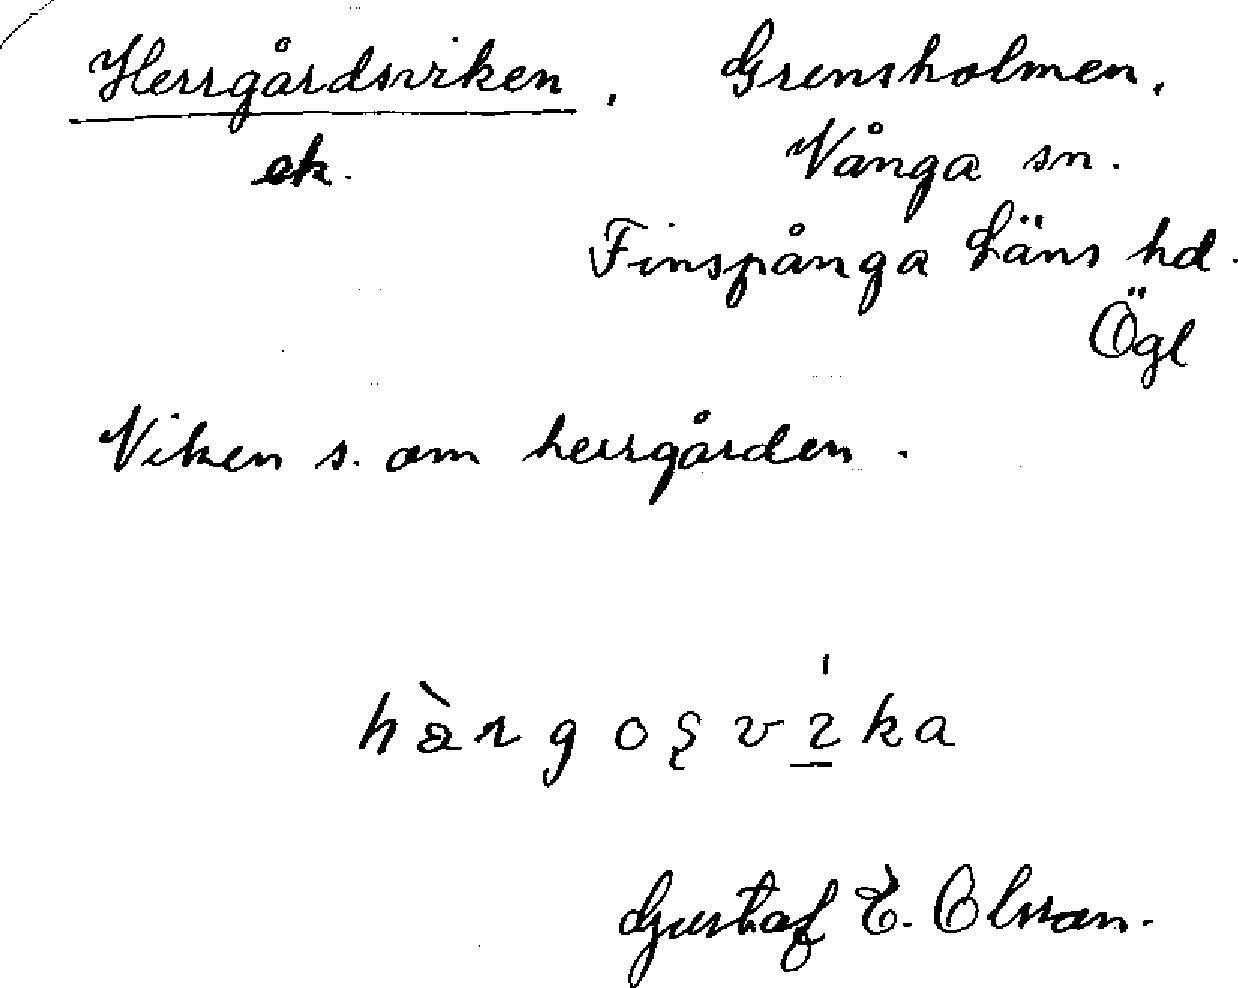 Herrgårdsviken, Grensholmen,
ek. Vånga sn.
Finspånga Läns hd.
Ögl
Viken s. om herrgården.
Gustaf E. Olsson.